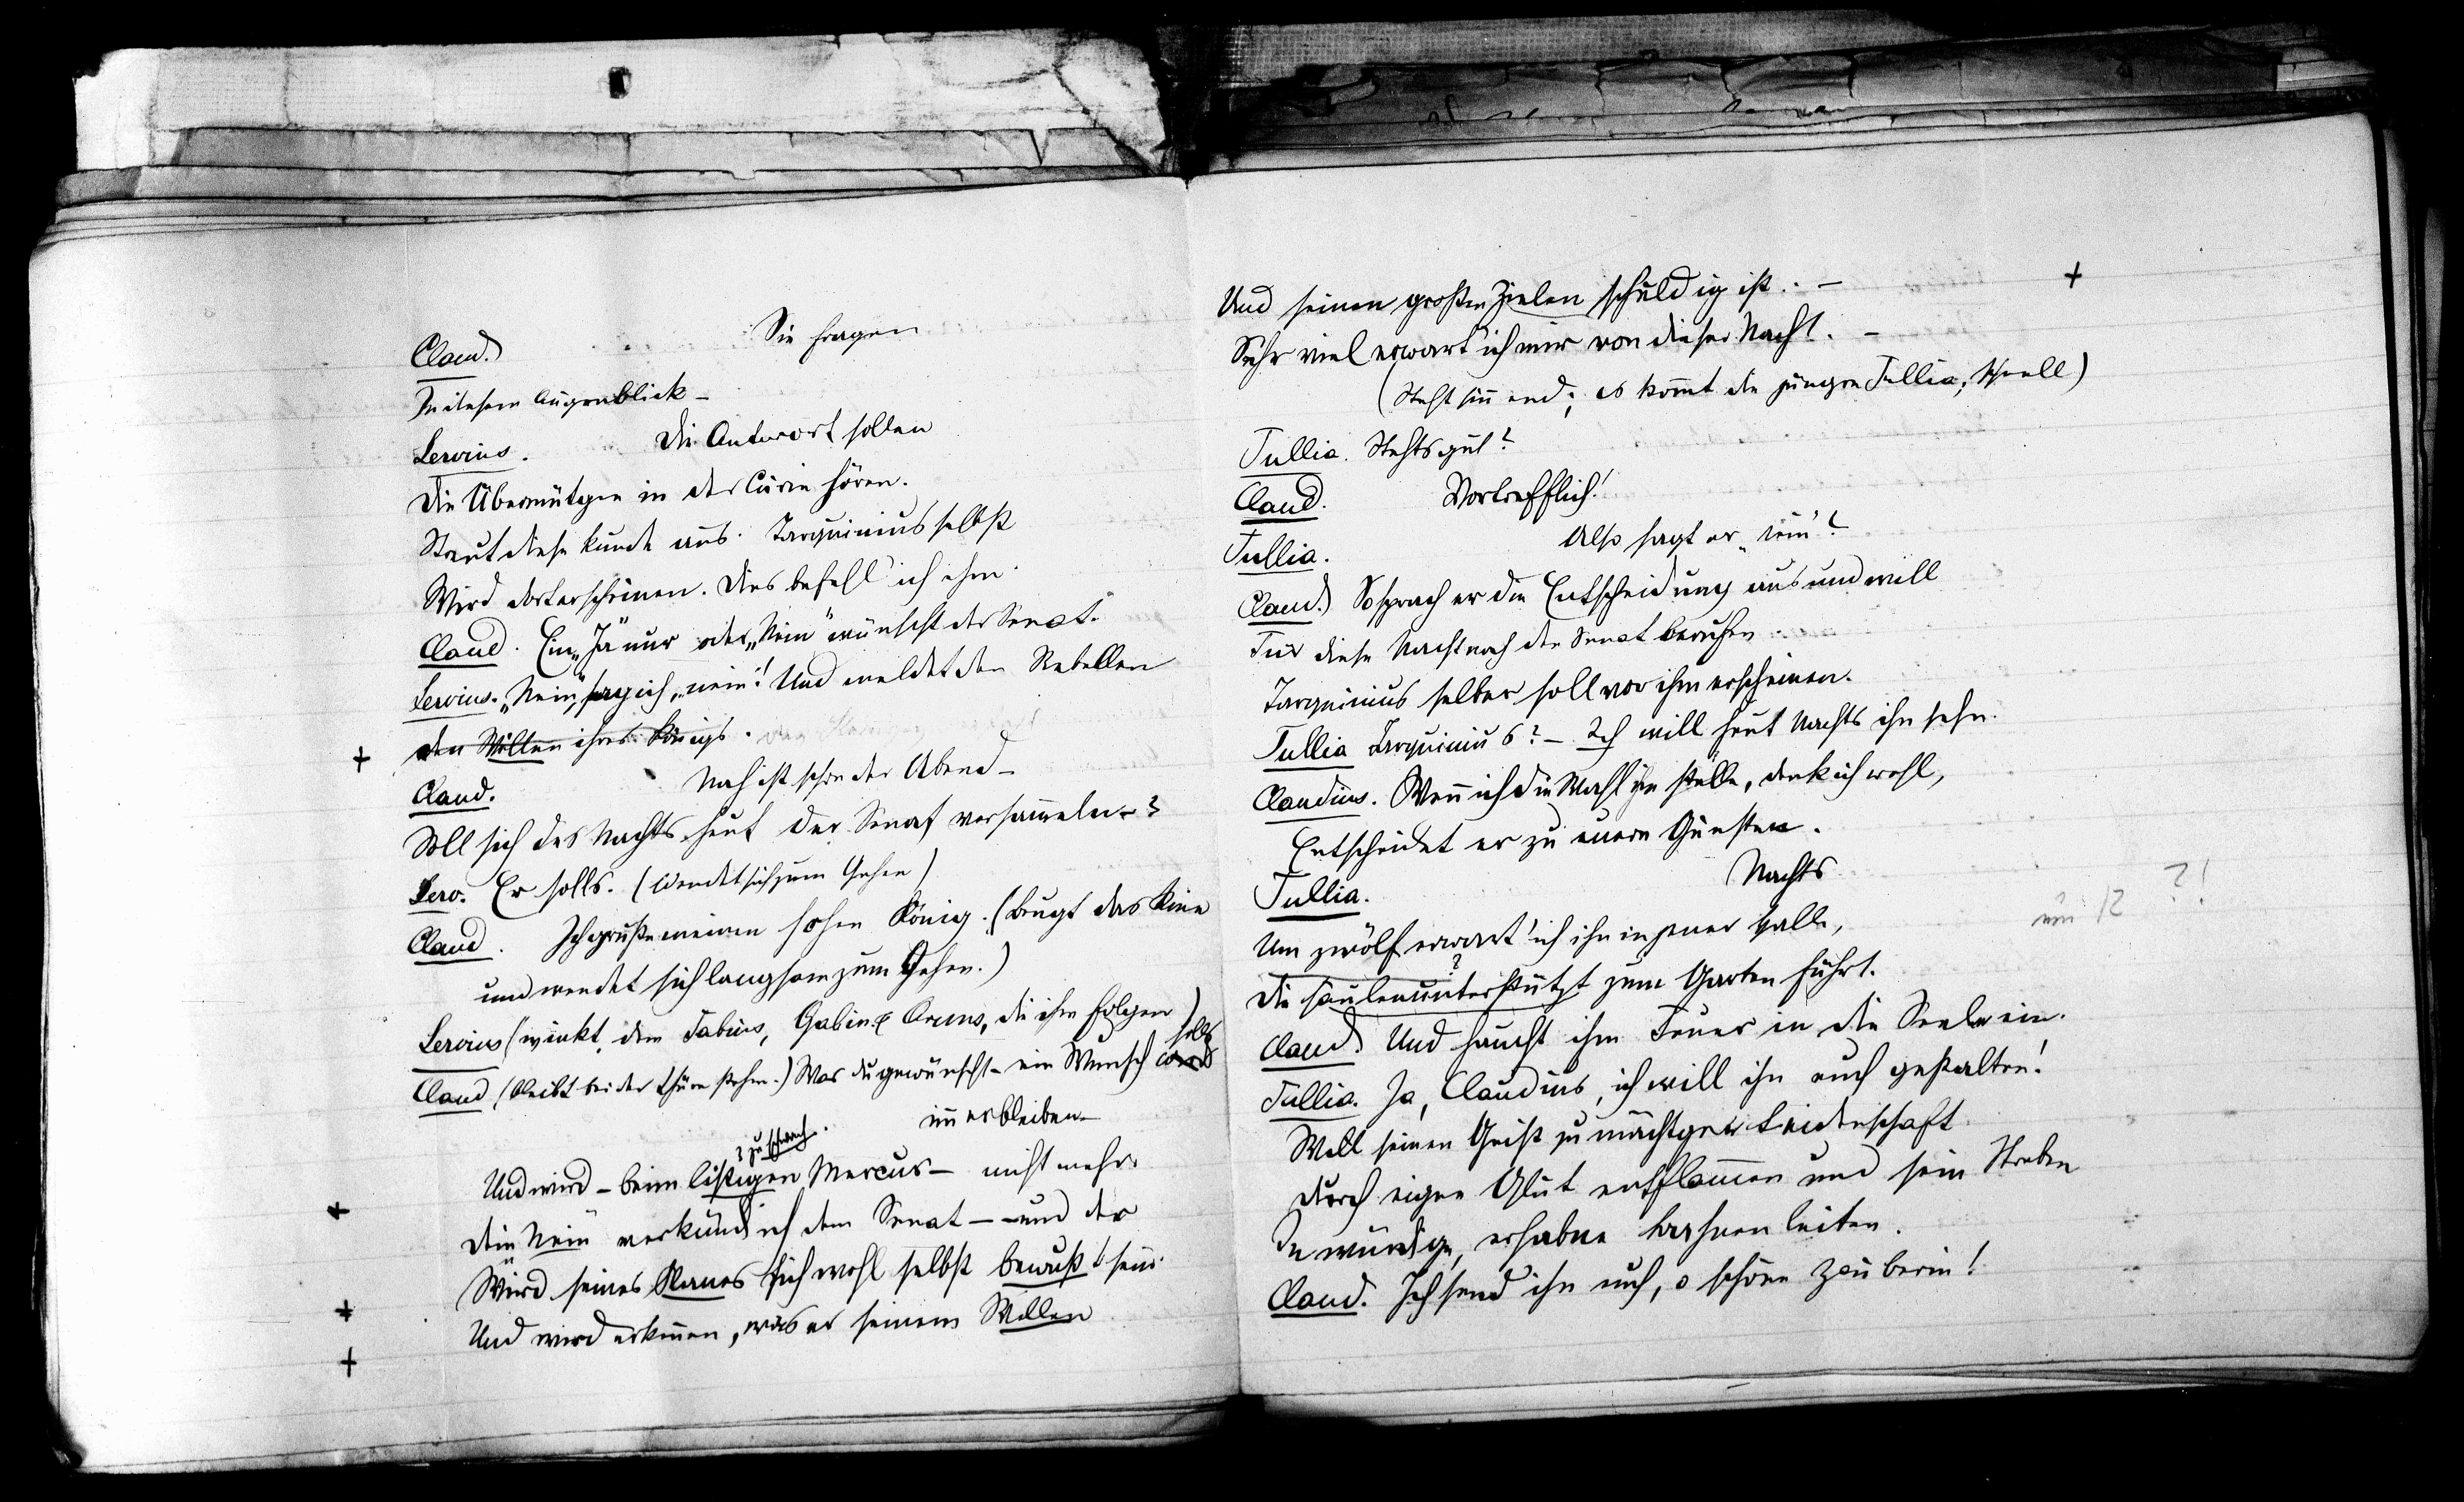 Sie fragen
Claud.
In diesem Augenblick –
Die Antwort sollen
Servius.
Die Übermütgen in der Curie hören.
Streut diese Kunde aus. Tarquinius selbst
Wird dort erscheinen. Dies befehl ich ihm.
Claud. Ein „Ja" nur oder „Nein" wünscht der Senat.
Servius. „Nein", sag ich, „nein! Und meldet den Rebellen
den Willen ihres Königs.
Nah ist schon der Abend –
Claud.
Soll sich des Nachts heut der Senat versam̄eln?
Serv. Er solls. (wendet sich zum Gehen)
Claud. Ich grüße meinen hohen König. (beugt das Knie
und wendet sich langsam zum Gehen.)
Servius (winkt dem Fabius, Gabin & Aruns, die ihm folgen)
solls
Claud (bleibt bei der Thüre stehen.) Was du gewünscht – ein Wunsch
im̄er bleiben –
? zu schwach.
Und wird – beim listigen Mercur – nicht mehr.
Dein Nein verkünd ich dem Senat – – und der
Wird seines Planes sich wohl selbst bewußt sein.
Und wird erken̄en, was er seinem Willen
Und seinen großen Zielen schuldig ist.. –
Sehr viel erwart ich mir von dieser Nacht. –
(Steht sin̄end; es kom̄t die jüngre Tullia, schnell)
Tullia. Stehts gut?
Claud. Vortrefflich!
Also sagt er „nein"?
Tullia.
Claud. So sprach er die Entscheidung aus und will
Für diese Nacht noch den Senat berufen.
Tarquinius selber soll vor ihm erscheinen.
Tullia Tarquinius? – Ich will heut Nachts ihn sehn.
Claudius. Wen̄ ich die Wahl ihm stelle, denk ich wohl,
Entscheidet er zu euern Gunsten.
Nachts
Tullia.
um 12 ?!
Um zwölf erwart' ich ihn in jener Halle,
?
Die säulenunterstützt zum Garten führt.
Claud. Und haucht ihm Feuer in die Seele ein.
Tullia. Ja, Claudius, ich will ihn euch gestalten!
Will seinen Geist zu mächtger Leidenschaft
Durch eigne Glut entflam̄en und sein Streben
In würdige, erhabne Bahnen leiten.
Claud. Ich send ihn euch, o schöne Zauberin!